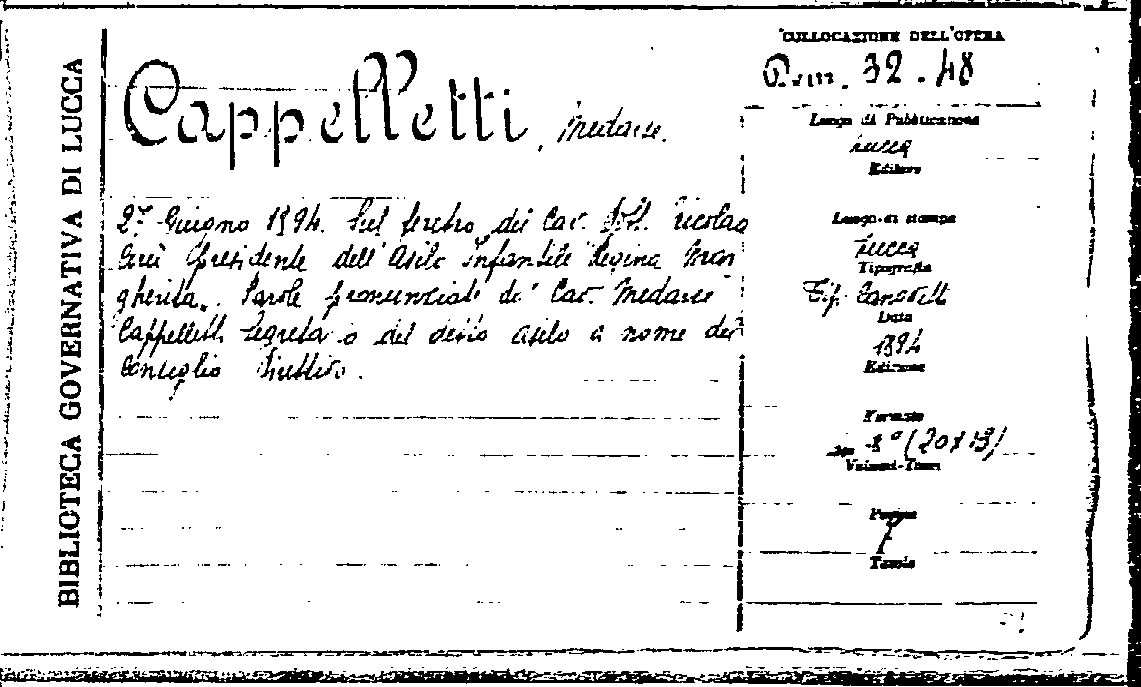 BIBLIOTECA GOVERNATIVA DI LUCCA
Cappelletti, Medarse.
27 Giugno 1894. Sul feretro del Cav. Dott. Nicolao
Presidente dell'Asilo Infantile Regina Mar
gherita. Parole pronunciate dal Cav. Medarse
Cappelletti Segretario del detto asilo a nome del
Consiglio Direttivo.
COLLOCAZIONE DELL'OPERA
32.48
Luogo di Pubblicazione
Lucca
Editore
Luogo di stampa
Lucca
Tipografia
Tip. Canovetti
Data
1894
Edizione
Formato
in 8° (20x13)
Volumi-Tomi
Pagine
7
Tavole